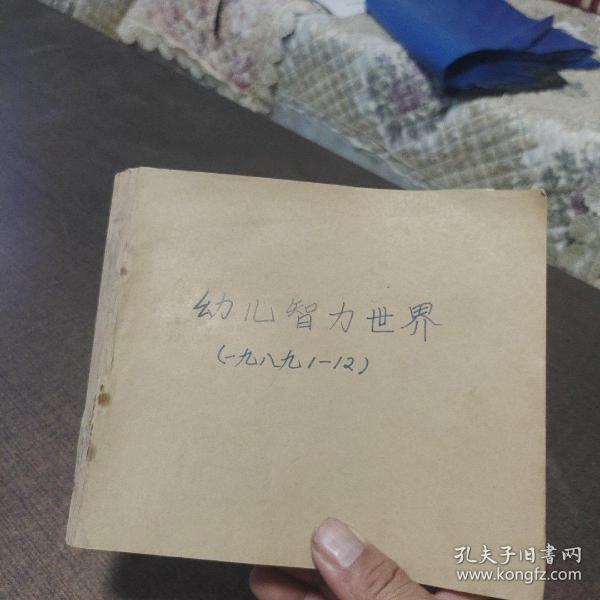 幼儿智力世界
(一九八九1-12)
孔夫子旧书网
www.kongfz.com